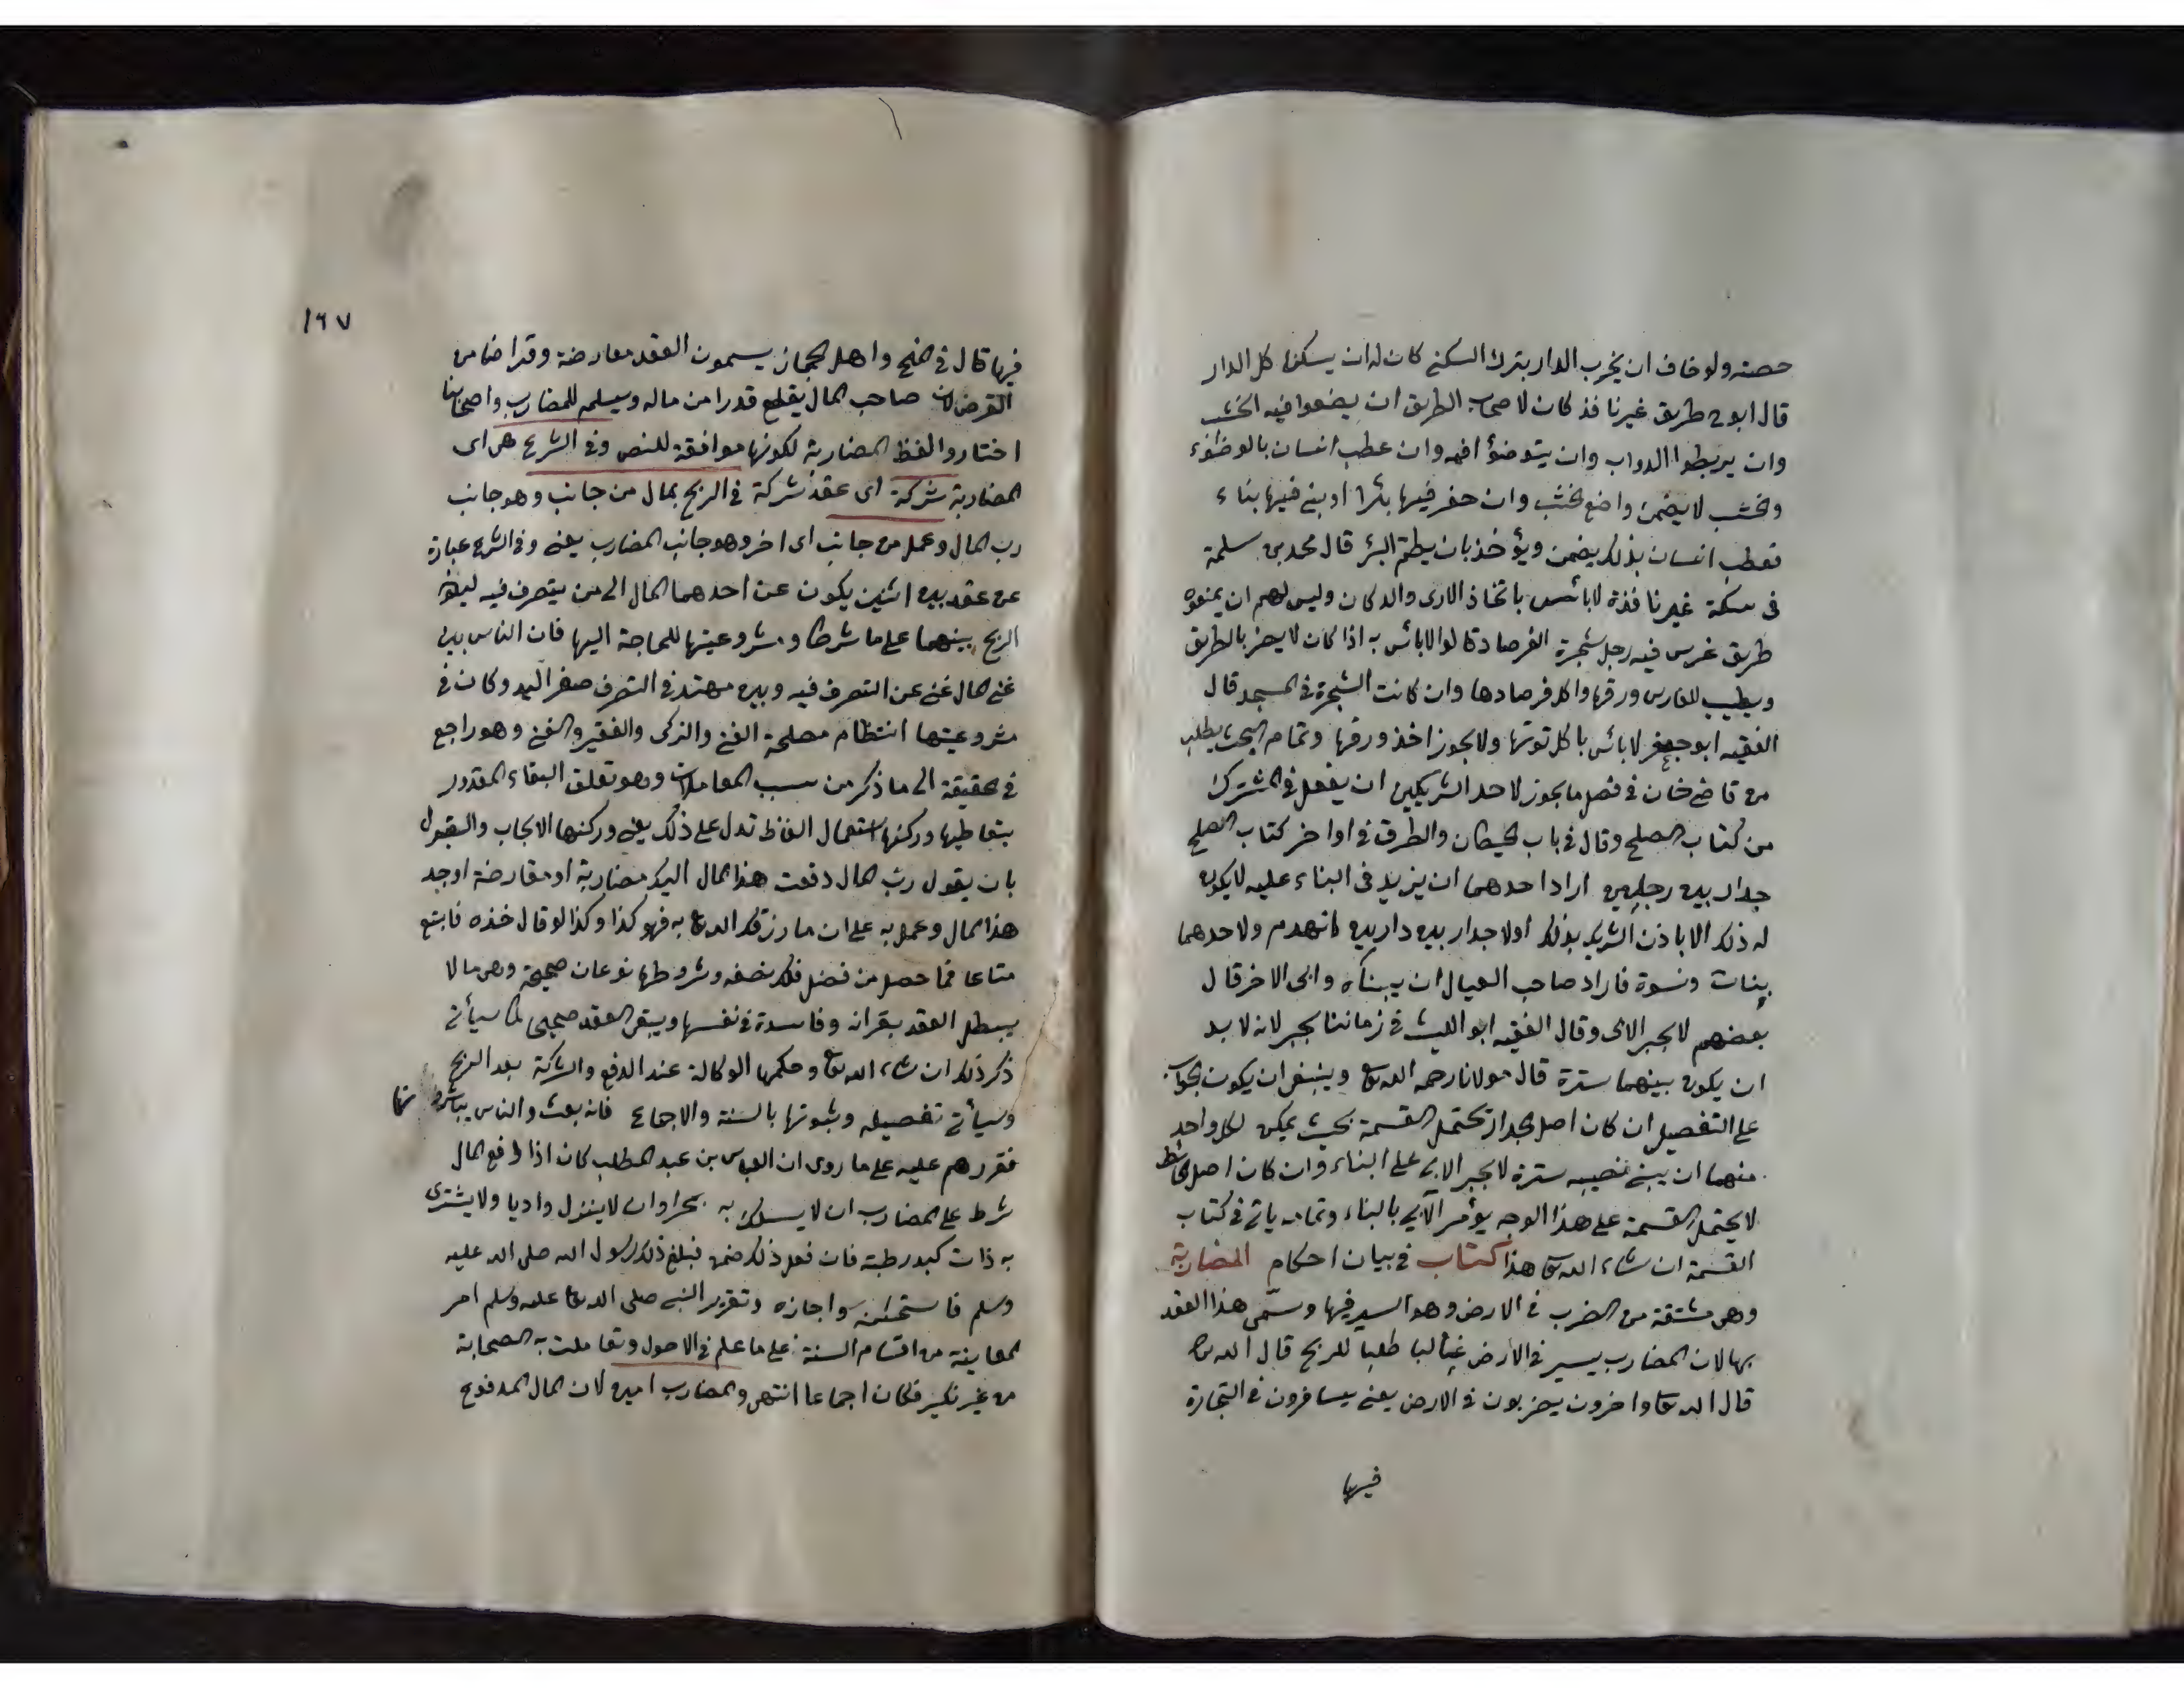 حصته ولو خاف ان يخرب الدار بترك السكنى كان له ان يسكنها كل الدار
قال ابو ح طريق غير نافذ كان لاصحاب الطريق ان يضعوا فيه الخشب
وان يربطوا الدواب وان يتوضؤا فيه وان عطب انسان بالوضوء
والخشب لا يضمن واضع الخشب وان حفر فيها بئرا او بنى فيها بناء
فعطب انسان بذلك يضمن ويؤخذ بان يطم البئر قال محمد بن سلمة
فى سكة غير نافذة لا بأس باتخاذ الارى والدكان وليس لهم ان يمنعوه
طريق غرس فيه رجل شجرة الفرصاد قالوا لا بأس به اذا كان لا يضر بالطريق
ويطيب للغارس ورقها واكل فرصادها وان كانت الشجرة فى المسجد قال
الفقيه ابو جعفر لا بأس باكل توتها ولا يجوز اخذ ورقها وتمام البحث يطلب
من قاضى خان فى فصل ما يجوز لاحد الشريكين ان يفعل فى المشترك
من كتاب الصلح وقال فى باب الحيطان والطرق فى اواخر كتاب الصلح
جدار بين رجلين اراد احدهما ان يزيد فى البناء عليه لا يكون
له ذلك الا باذن الشريك بذلك اولا جدار بين دارين انهدم ولاحدهما
بنات ونسوة فاراد صاحب العيال ان يبناه وابى الاخر قال
بعضهم لا يجبر الابى وقال الفقيه ابو الليث فى زماننا يجبر لانه لا بد
ان يكون بينهما سترة قال مولانا رحمه الله تع وينبغى ان يكون الجواب
على التفصيل ان كان اصل الجدار تحتمل القسمة بحيث يمكن لكل واحد
منهما ان يبنى نصيبه سترة لا يجبر الابى على البناء وان كان اصل الحائط
لا يحتمل القسمة على هذا الوجه يؤمر الآبى بالبناء وتمامه ياتى فى كتاب
القسمة ان شاء الله تع هذا كتاب فى بيان احكام المضاربة
وهى مشتقة من الضرب فى الارض وهو السير فيها وسمى هذا العقد
بها لان المضارب يسير فى الارض غالبا طلبا للربح قال الله تع
قال الله تع واخرون يضربون فى الارض يعنى يسافرون فى التجارة
فيها
١٦٧
فيها قال فى المنح واهل الحجاز يسمون العقد معارضة وقراضا من
القرض لان صاحب المال يقطع قدرا من ماله ويسلمه للمضارب واصحابنا
اختاروا لفظ المضاربة لكونها موافقة للنص وفى الشرع هى اى
المضاربة شركة اى عقد شركة فى الربح بمال من جانب وهو جانب
رب المال وعمل من جانب اى اخر وهو جانب المضارب يعنى وفى الشرع عبارة
عن عقد بين اثنين يكون عن احدهما المال الى من يتصرف فيه ليكون
الربح بينهما على ما شرطا ومشروعيتها للحاجة اليها فان الناس بين
غنى المال غنى عن التصرف فيه وبين مهتد فى التصرف صفر اليد وكان فى
مشروعيتها انتظام مصلحة الغنى والذكى والفقير والغنى وهو راجع
فى الحقيقة الى ما ذكر من سبب المعاملات وهو تعلق البقاء المقدور
بتعاطيها وركنها استعمال الفاظ تدل على ذلك يعنى وركنها الايجاب والقبول
بان يقول رب المال دفعت هذا المال اليك مضاربة او مقارضة او خذ
هذا المال وعمل به على ان ما رزقك الله تع به فهو كذا وكذا لو قال خذه فابتع
متاعا فما حصل من فضل فلك نصفه وشروطها نوعان صحيحة وهى ما لا
يبطل العقد بقرانه وفاسدة فى نفسها ويبقى العقد صحيحا كما سيأتى
ذكر ذلك ان شاء الله تع وحكمها الوكالة عند الدفع والشركة بعد الربح
وسيأتى تفصيله وثبوتها بالسنة والاجماع فانه بعث والناس يباشرونها
فقررهم عليه على ما روى ان العباس بن عبد المطلب كان اذا دفع المال
شرط على المضارب ان لا يسلك به بحرا وان لا ينزل واديا ولا يشترى
به ذات كبد رطبة فان فعل ذلك ضمن فبلغ ذلك رسول الله صلى الله عليه
وسلم فاستحسنه واجازه وتقرير النبى صلى الله تع عليه وسلم امر
المعاينة من اقسام السنة على ما علم فى الاصول وتعاملت به الصحابة
من غير نكير فكان اجماعا انتهى والمضارب امين لان المال المدفوع